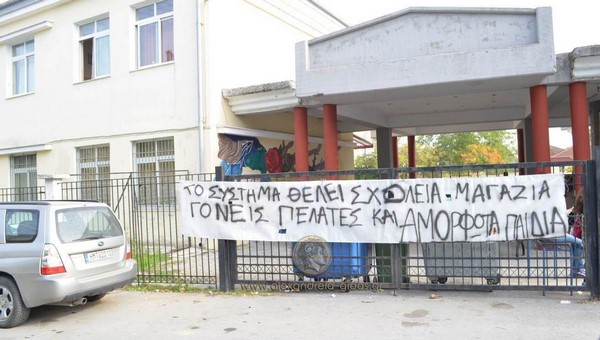 ΤΟ ΣΥΣΤΗΜΑ ΘΕΛΕΙ ΣΧΟΛΕΙΑ - ΜΑΓΑΖΙΑ
ΓΟΝΕΙΣ ΠΕΛΑΤΕΣ ΚΑΙ ΑΜΟΡΦΩΤΑ ΠΑΙΔΙΑ
www.alexandreia-gidas.gr